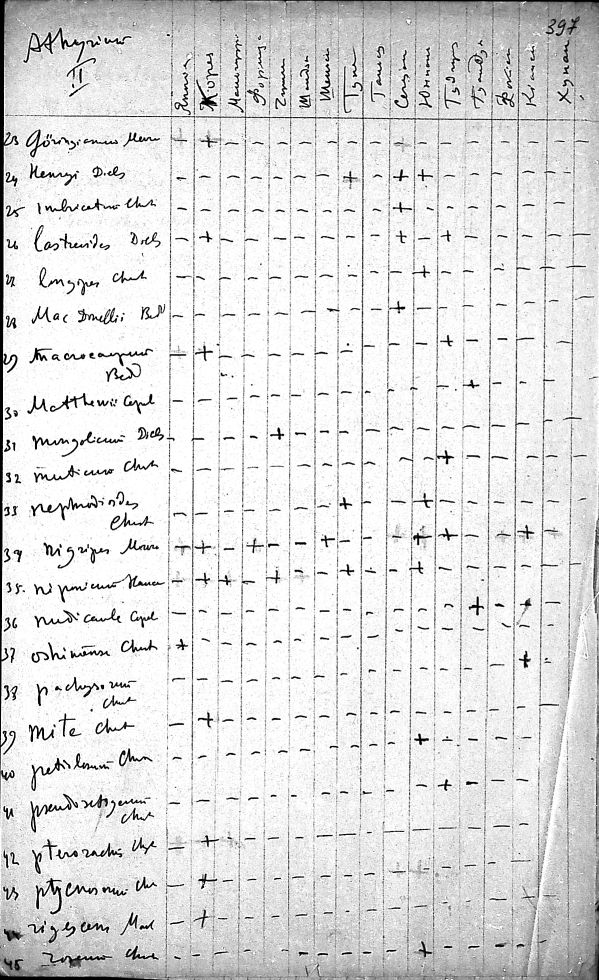 397
Athyrium
II
Япония Корея Маньчжур Формоза Чжили Шаньдун Шеньси Хунан
23 Göringianum Moore – + – – – – – – – – – – – – – –
24 Henryi Diels – – – – – – – + – + + – – – – –
25 imbricatum Christ – – – – – – – – – + – – – – – –
26 lastreoides Diels – + – – – – – – – + – + – – – –
27 longipes Christ – – – – – – – – – – + – – – – –
28 Mac Donellii Bedd – – – – – – – – – + – – – – – –
29 macrocarpum – + – – – – – – – – – + – – – –
Bedd
30 Matthewii Copel – – – – – – – – – – – – + – – –
31 mongolicum Diels – – – – + – – – – – – – – – – –
32 muticum Christ – – – – – – – – – – – + – – – –
33 nephrodioides – – – – – – – + – – + – – – – –
Christ
34 nigripes Moore + + – + – – + – – – + + – – + –
35. niponicum Hance – + + – + – – + – – + – – – – –
36 nudicaule Copel – – – – – – – – – – – – + – + –
37 oshimense Christ + – – – – – – – – – – – – – – –
38 pachysorum – – – – – – – – – – – – – – + –
Christ
39 mite Christ – + – – – – – – – – – – – – – –
40 petiolosum Christ – – – – – – – – – – + – – – – –
41 pseudosetigerum – – – – – – – – – – – + – – – –
Christ
42 pterorachis Christ – + – – – – – – – – – – – – – –
43 ptycnosorum Chr – + – – – – – – – – – – – – – –
44 rigescens Mak – + – – – – – – – – – – – – – –
45 Christ – – – – – – – – – – + – – – – –